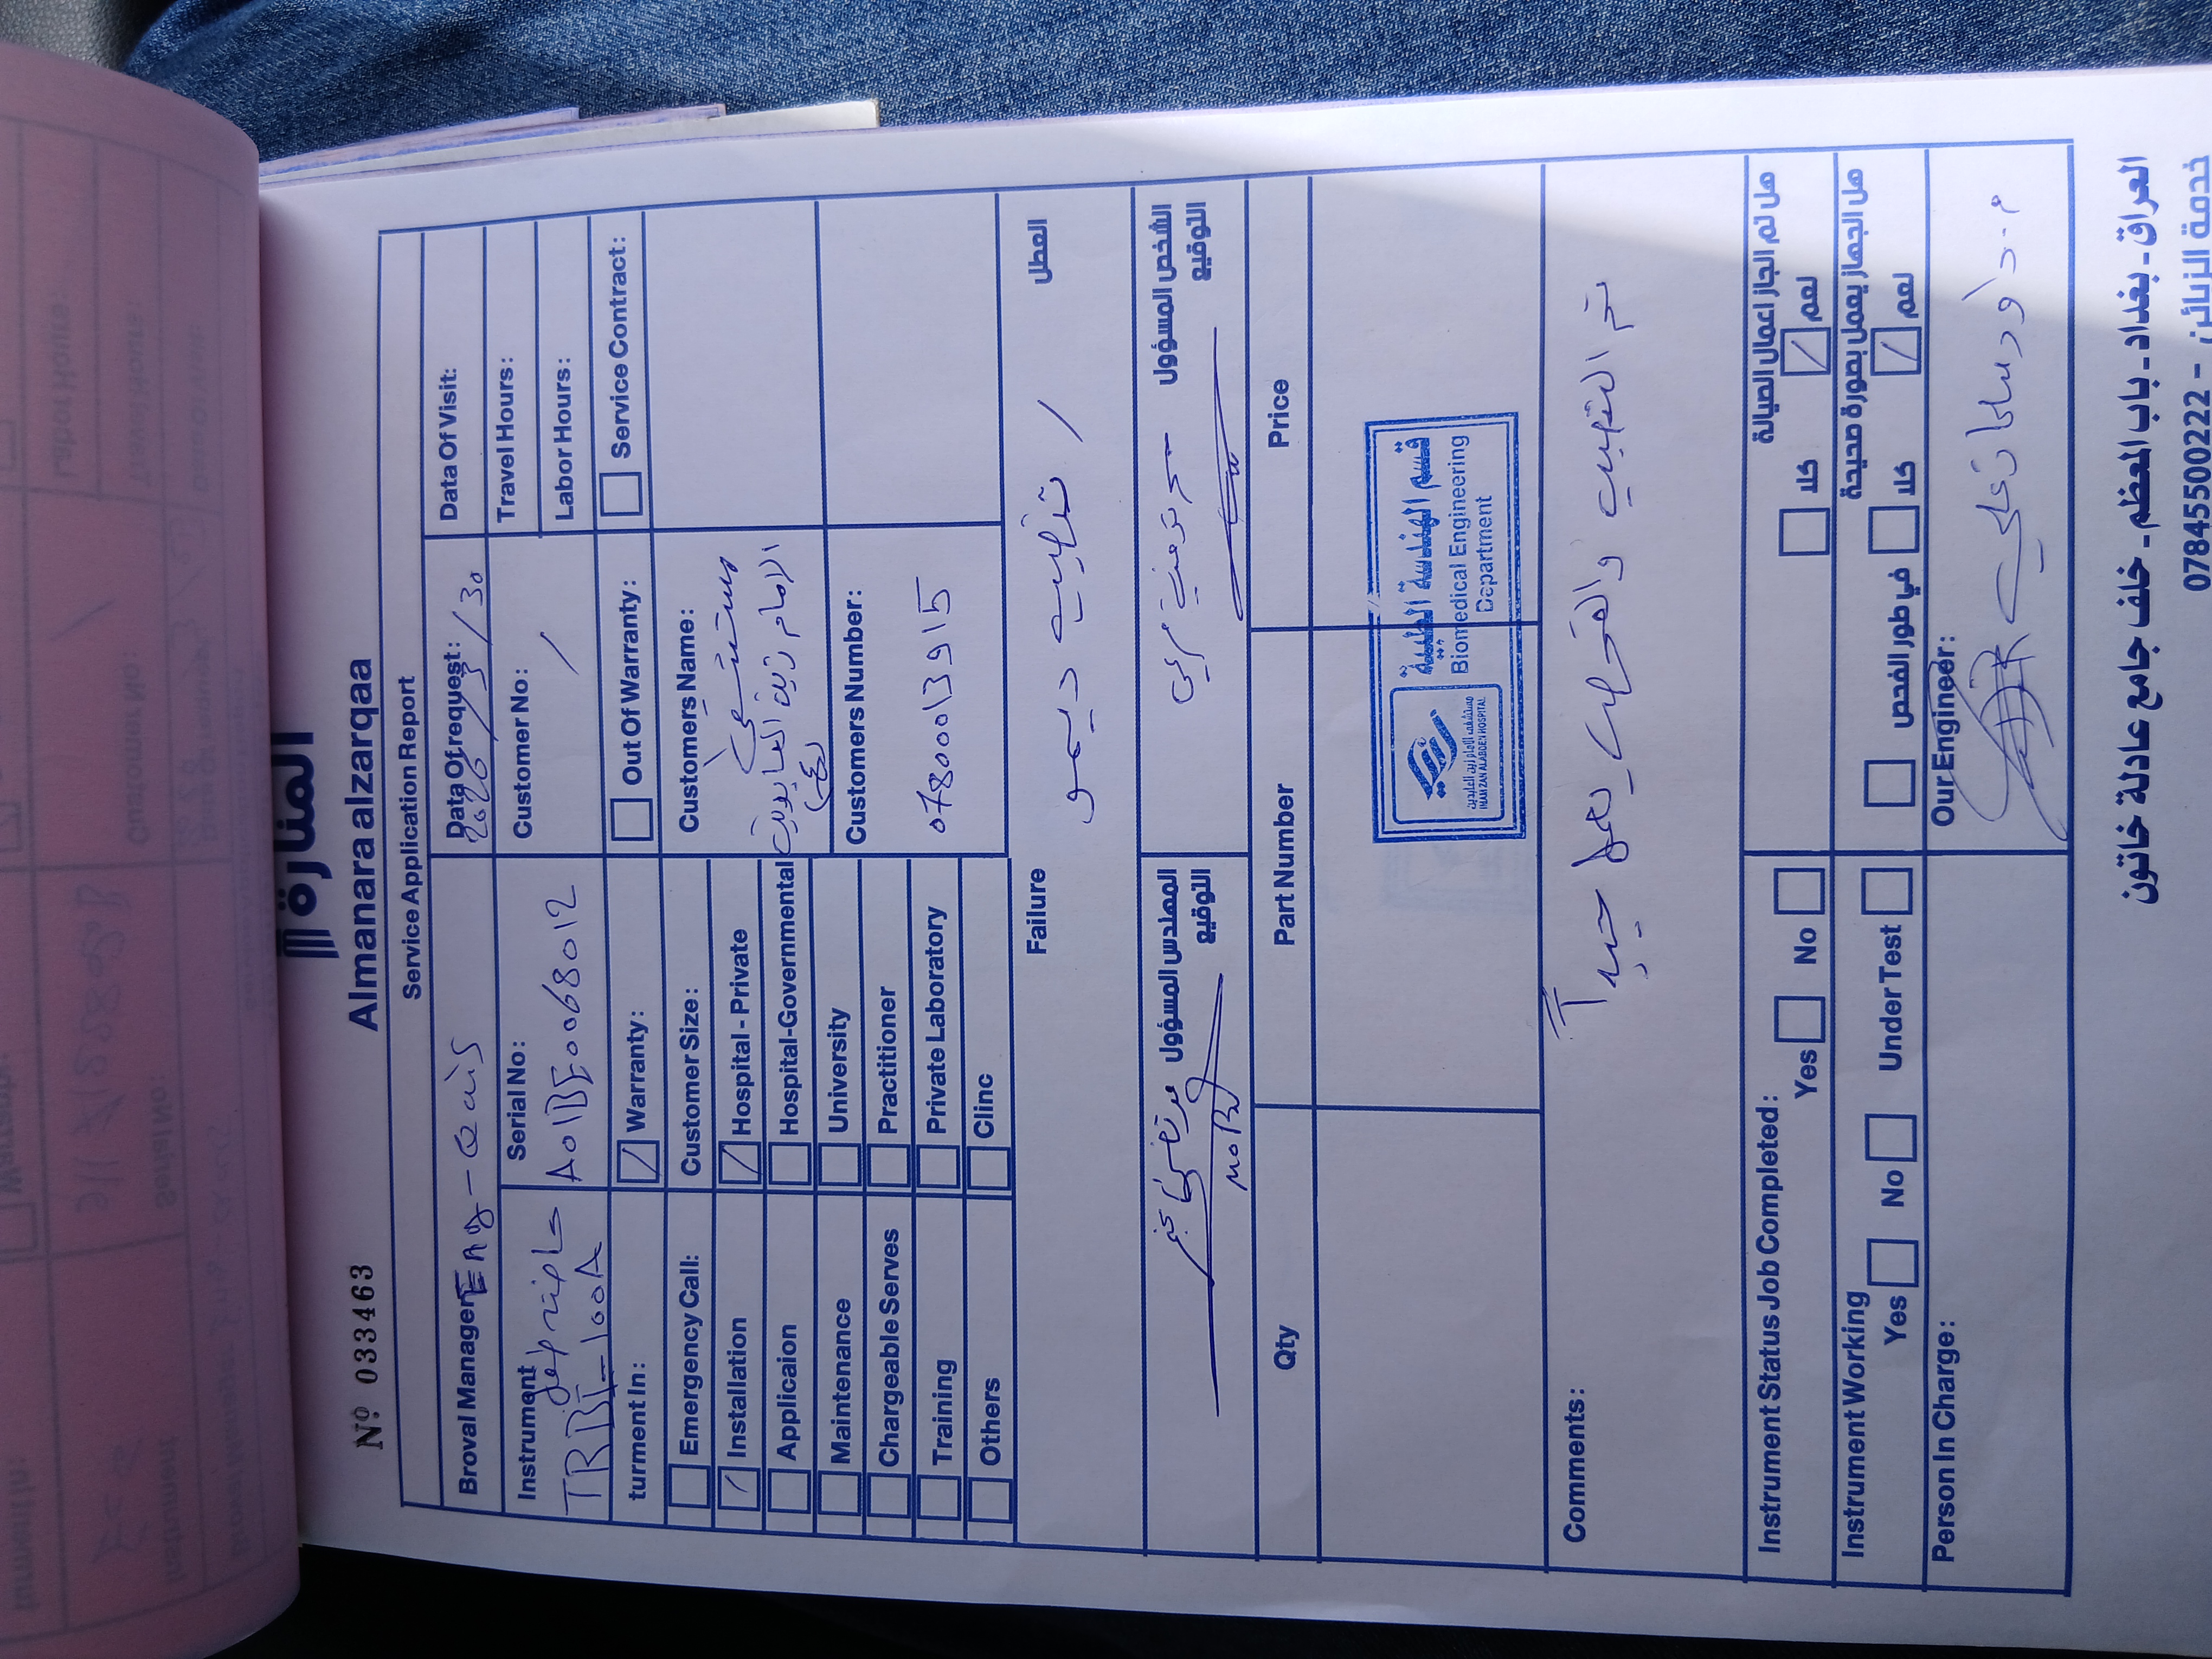 المنارة
Nº 033463
Almanara alzarqaa
Service Application Report
Broval Manager
Data Of request:
2026/3/30
Data Of Visit:
Instrument
TRBI-100A
Serial No:
A01BE0068012
Customer No:
/
Travel Hours:
Labor Hours:
turment In:
Warranty:
Out Of Warranty:
Service Contract:
Emergency Call:
Customer Size:
Customers Name:
مستشفى
الامام زين العابدين
(ع)
Installation
Hospital - Private
Applicaion
Hospital-Governmental
Maintenance
University
Customers Number:
07800013915
Chargeable Serves
Practitioner
Training
Private Laboratory
Others
Clinc
Failure
العطل
تنصيب ديمو /
المهندس المسؤول
التوقيع
مرتضى
الشخص المسؤول
التوقيع
Qty
Part Number
Price
مستشفى الامام زين العابدين
IMAM ZAN ALABDEN HOSPITAL
قسم الهندسة الطبية
Biomedical Engineering
Department
Comments:
تم التنصيب والفحص يعمل جيداً
Instrument Status Job Completed:
Yes
No
هل تم انجاز اعمال الصيانة
كلا
نعم
Instrument Working
Yes
No
Under Test
هل الجهاز يعمل بصورة صحيحة
في طور الفحص
كلا
نعم
Person In Charge:
Our Engineer:
العراق - بغداد - باب المعظم - خلف جامع عادلة خاتون
خدمة الزبائن - 07845500222